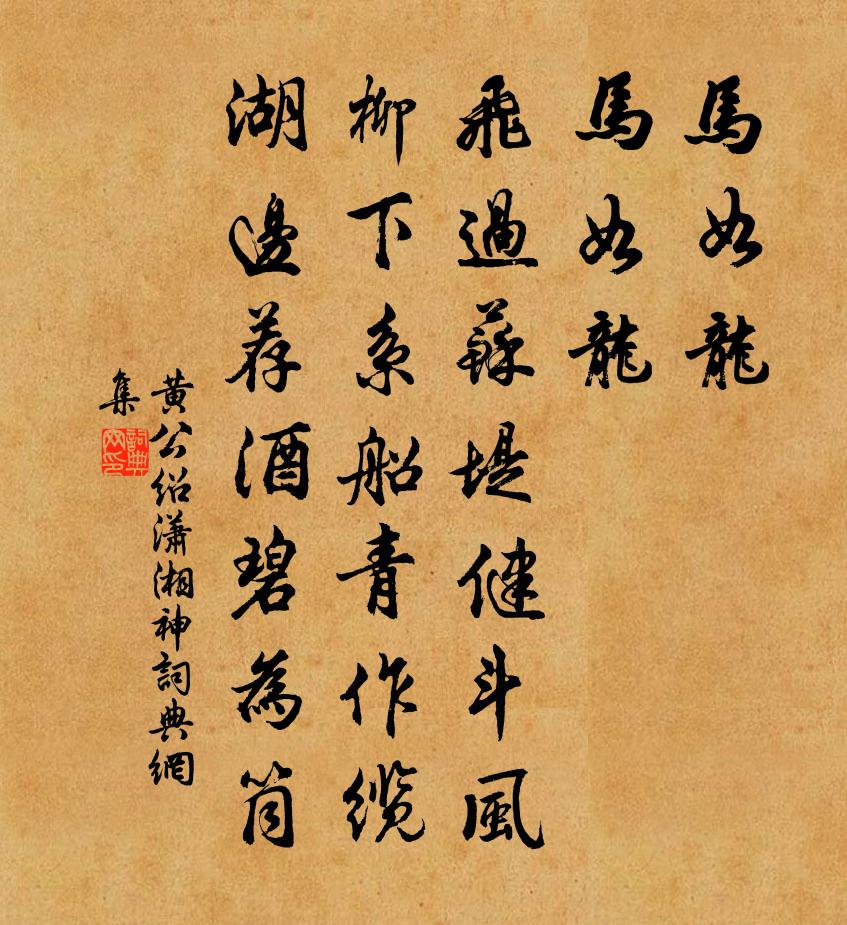 馬如龍
馬如龍
飛過蘇堤健斗風
柳下系船青作缆
湖邊荐酒碧為筒
黄公绍瀟湘神詞典網
集
詞典网印